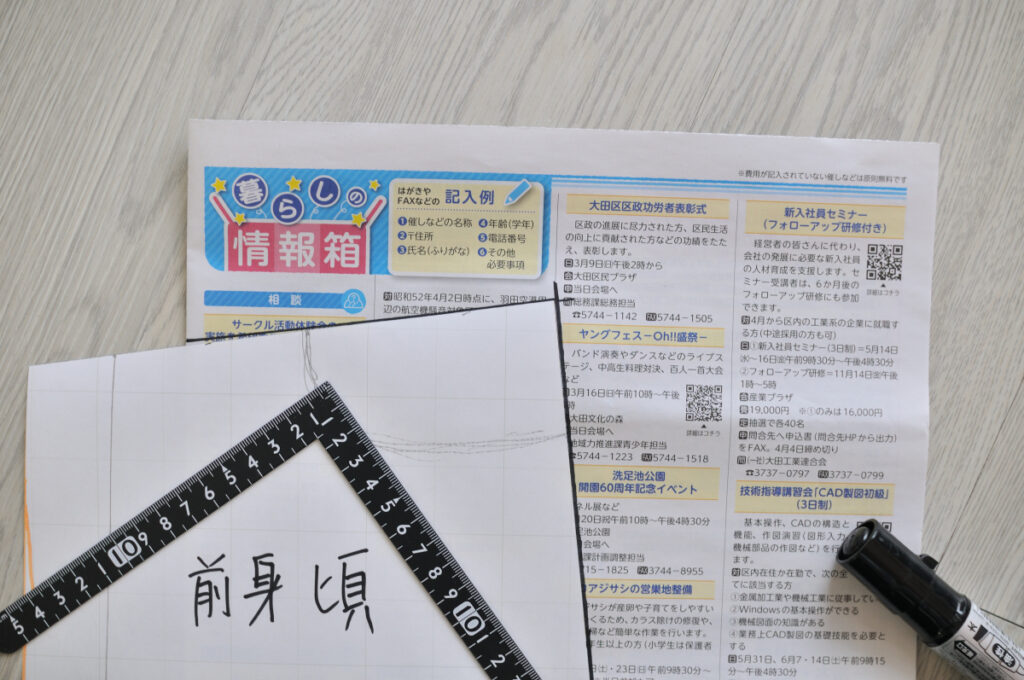 ※費用が記入されていない催しなどは原則無料です
暮らしの
情報箱
はがきや
FAXなどの 記入例
①催しなどの名称
②〒住所
③氏名(ふりがな)
④年齢(学年)
⑤電話番号
⑥その他
必要事項
相談
サークル活動体験会
対昭和52年4月2日時点に、羽田空港
辺の航空機騒音対
大田区区政功労者表彰式
区政の進展に尽力された方、区民生活
の向上に貢献された方などの功績をたた
え、表彰します。
日3月9日(日)午後2時から
会大田区民プラザ
申当日会場へ
問総務課総務担当
☎5744-1142 FAX5744-1505
ヤングフェスーOh!!盛祭ー
バンド演奏やダンスなどのライブス
テージ、中高生料理対決、百人一首大会
など
日3月16日(日)午前10時~午後
時
大田文化の森
当日会場へ
地域力推進課青少年担当
☎5744-1223 FAX5744-1518
詳細はコチラ
洗足池公園
開園60周年記念イベント
ネル展など
20日(祝)午前10時~午後4時30分
足池公園
会場へ
課計画調整担当
715-1825 FAX3744-8955
アジサシの営巣地整備
ジサシが産卵や子育てをしやすい
くるため、カラス除けの修復や、
掃など簡単な作業を行います。
学生以上の方(小学生は保護者
日(土)・23日(日)午前9時30分~
新入社員セミナー
(フォローアップ研修付き)
経営者の皆さんに代わり、
会社の発展に必要な新入社員
の人材育成を支援します。セ
ミナー受講者は、6か月後の
フォローアップ研修にも参加
できます。
詳細はコチラ
対4月から区内の工業系の企業に就職す
る方(中途採用の方も可)
日①新入社員セミナー(3日制)=5月14日
(水)~16日(金)午前9時30分~午後4時30分
②フォローアップ研修=11月14日(金)午後
1時~5時
会産業プラザ
費19,000円 ※①のみは16,000円
定抽選で各40名
申問合先へ申込書(問合先HPから出力)
をFAX。4月4日締め切り
問(一社)大田工業連合会
☎3737-0797 FAX3737-0799
技術指導講習会「CAD製図初級」
(3日制)
基本操作、CADの構造と
機能、作図演習(図形入力
機械部品の作図など)を行
ます。
対区内在住か在勤で、次の全
てに該当する方
①金属加工業や機械工業に従事してい
②Windowsの基本操作ができる
③機械図面の知識がある
④業務上CAD製図の基礎技能を必要と
する
日5月31日、6月7・14日(土)午前9時15
分~午後4時30分
5 4 3 2 1 10 9 8 7 6 5 4 3 2 1
2 3 4 5 6 7 8 9 10 1 2
前身頃